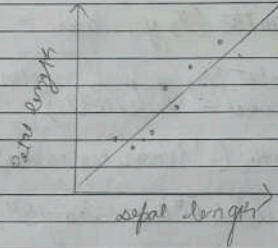 Petal length
sepal length